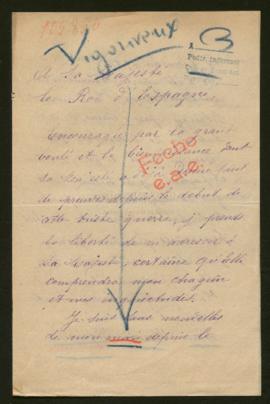 Vigouroux
B
A Sa Majesté
le Roi d'Espagne,
Encouragée par la grande
bonté et la bienveillance dont
Sa
donné tant
de preuves depuis le début de
cette triste guerre, je prends
la liberté de m'adresser à
Sa Majesté, certaine qu'elle
comprendra mon chagrin
et mes inquiétudes.
Je suis sans nouvelles
de mon mari depuis le
Fecho